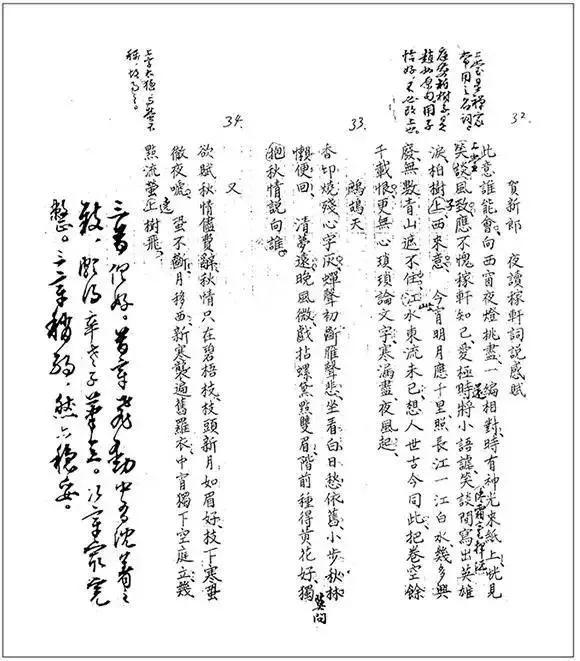 32.
賀新郎　夜讀稼軒詞說感賦
此意誰能會向西窗夜燈挑盡、一編相對、時有神光來紙上、恍見
談風致應不愧稼軒知己、愛極時將小語謔笑談間寫出英雄
淚柏樹上西來意　今宵明月應千里、照長江一江白水幾多興
廢無數青山遮不住、江水東流未已、想人世古今同此、把卷空餘
千載恨更無心瑣瑣論文字、寒漏盡、夜風起、
上堂是禪家
常用之名詞
庭前柏樹子是
趙州原句用子
恰好，不必改上也
上堂
子
33.
鷓鴣天
香印燒殘心字灰蟬聲初斷雁聲悲、坐看白日愁依舊、小步秋林
懶便回　清夢遠、晚風微、戲拈螺黛點雙眉、階前種得黃花好、獨
抱秋情說向誰、
莫問
34.
又
欲賦秋情儘費辭、秋情只在碧梧枝、枝頭新月如眉好、枝下寒蛩
徹夜嘶　蛩不斷、月移西、新寒襲遍舊羅衣、中宵獨下空庭立、幾
點流螢上樹飛、
遶
上字太穩，与螢不
稱，故易之。
三首俱好。首章飛動中有沈着之
致，頗得辛老子筆意。次章最完
整。三章稍弱，然亦穩妥。